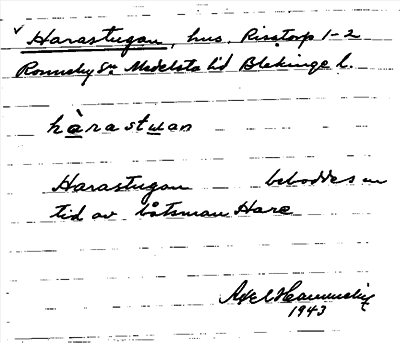 √ Harastugan, hus. Risstorp 1-2
Ronneby Sn Medelsta h'd Blekinge l.
hàrastuan
Harastugan beboddes en
tid av båtsman Hare
Axel
1943